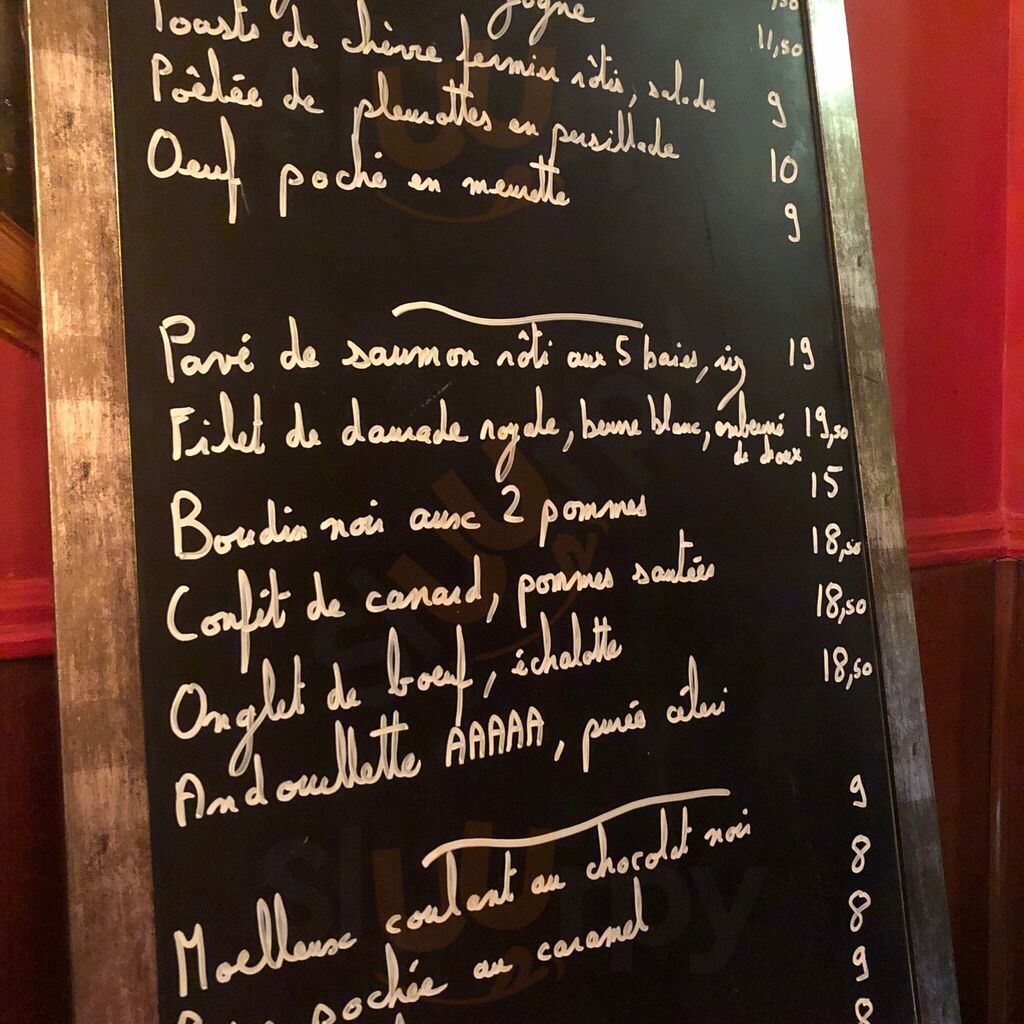 11,50
Toasts de chèvre fermier rôtis, salade 9
Poêlée de pleurottes en persillade 10
Oeuf poché en meurette 9
Pavé de saumon rôti aux 5 baies, riz 19
Filet de daurade royale, beurre blanc, embeurré de choux 19,50
Boudin noir aux 2 pommes 15
Confit de canard, pommes sautées 18,50
Onglet de boeuf, échalotte 18,50
Andouillette AAAAA, purée céleri 18,50
Moelleux coulant au chocolat noir 9
pochée au caramel 8
8
9
8